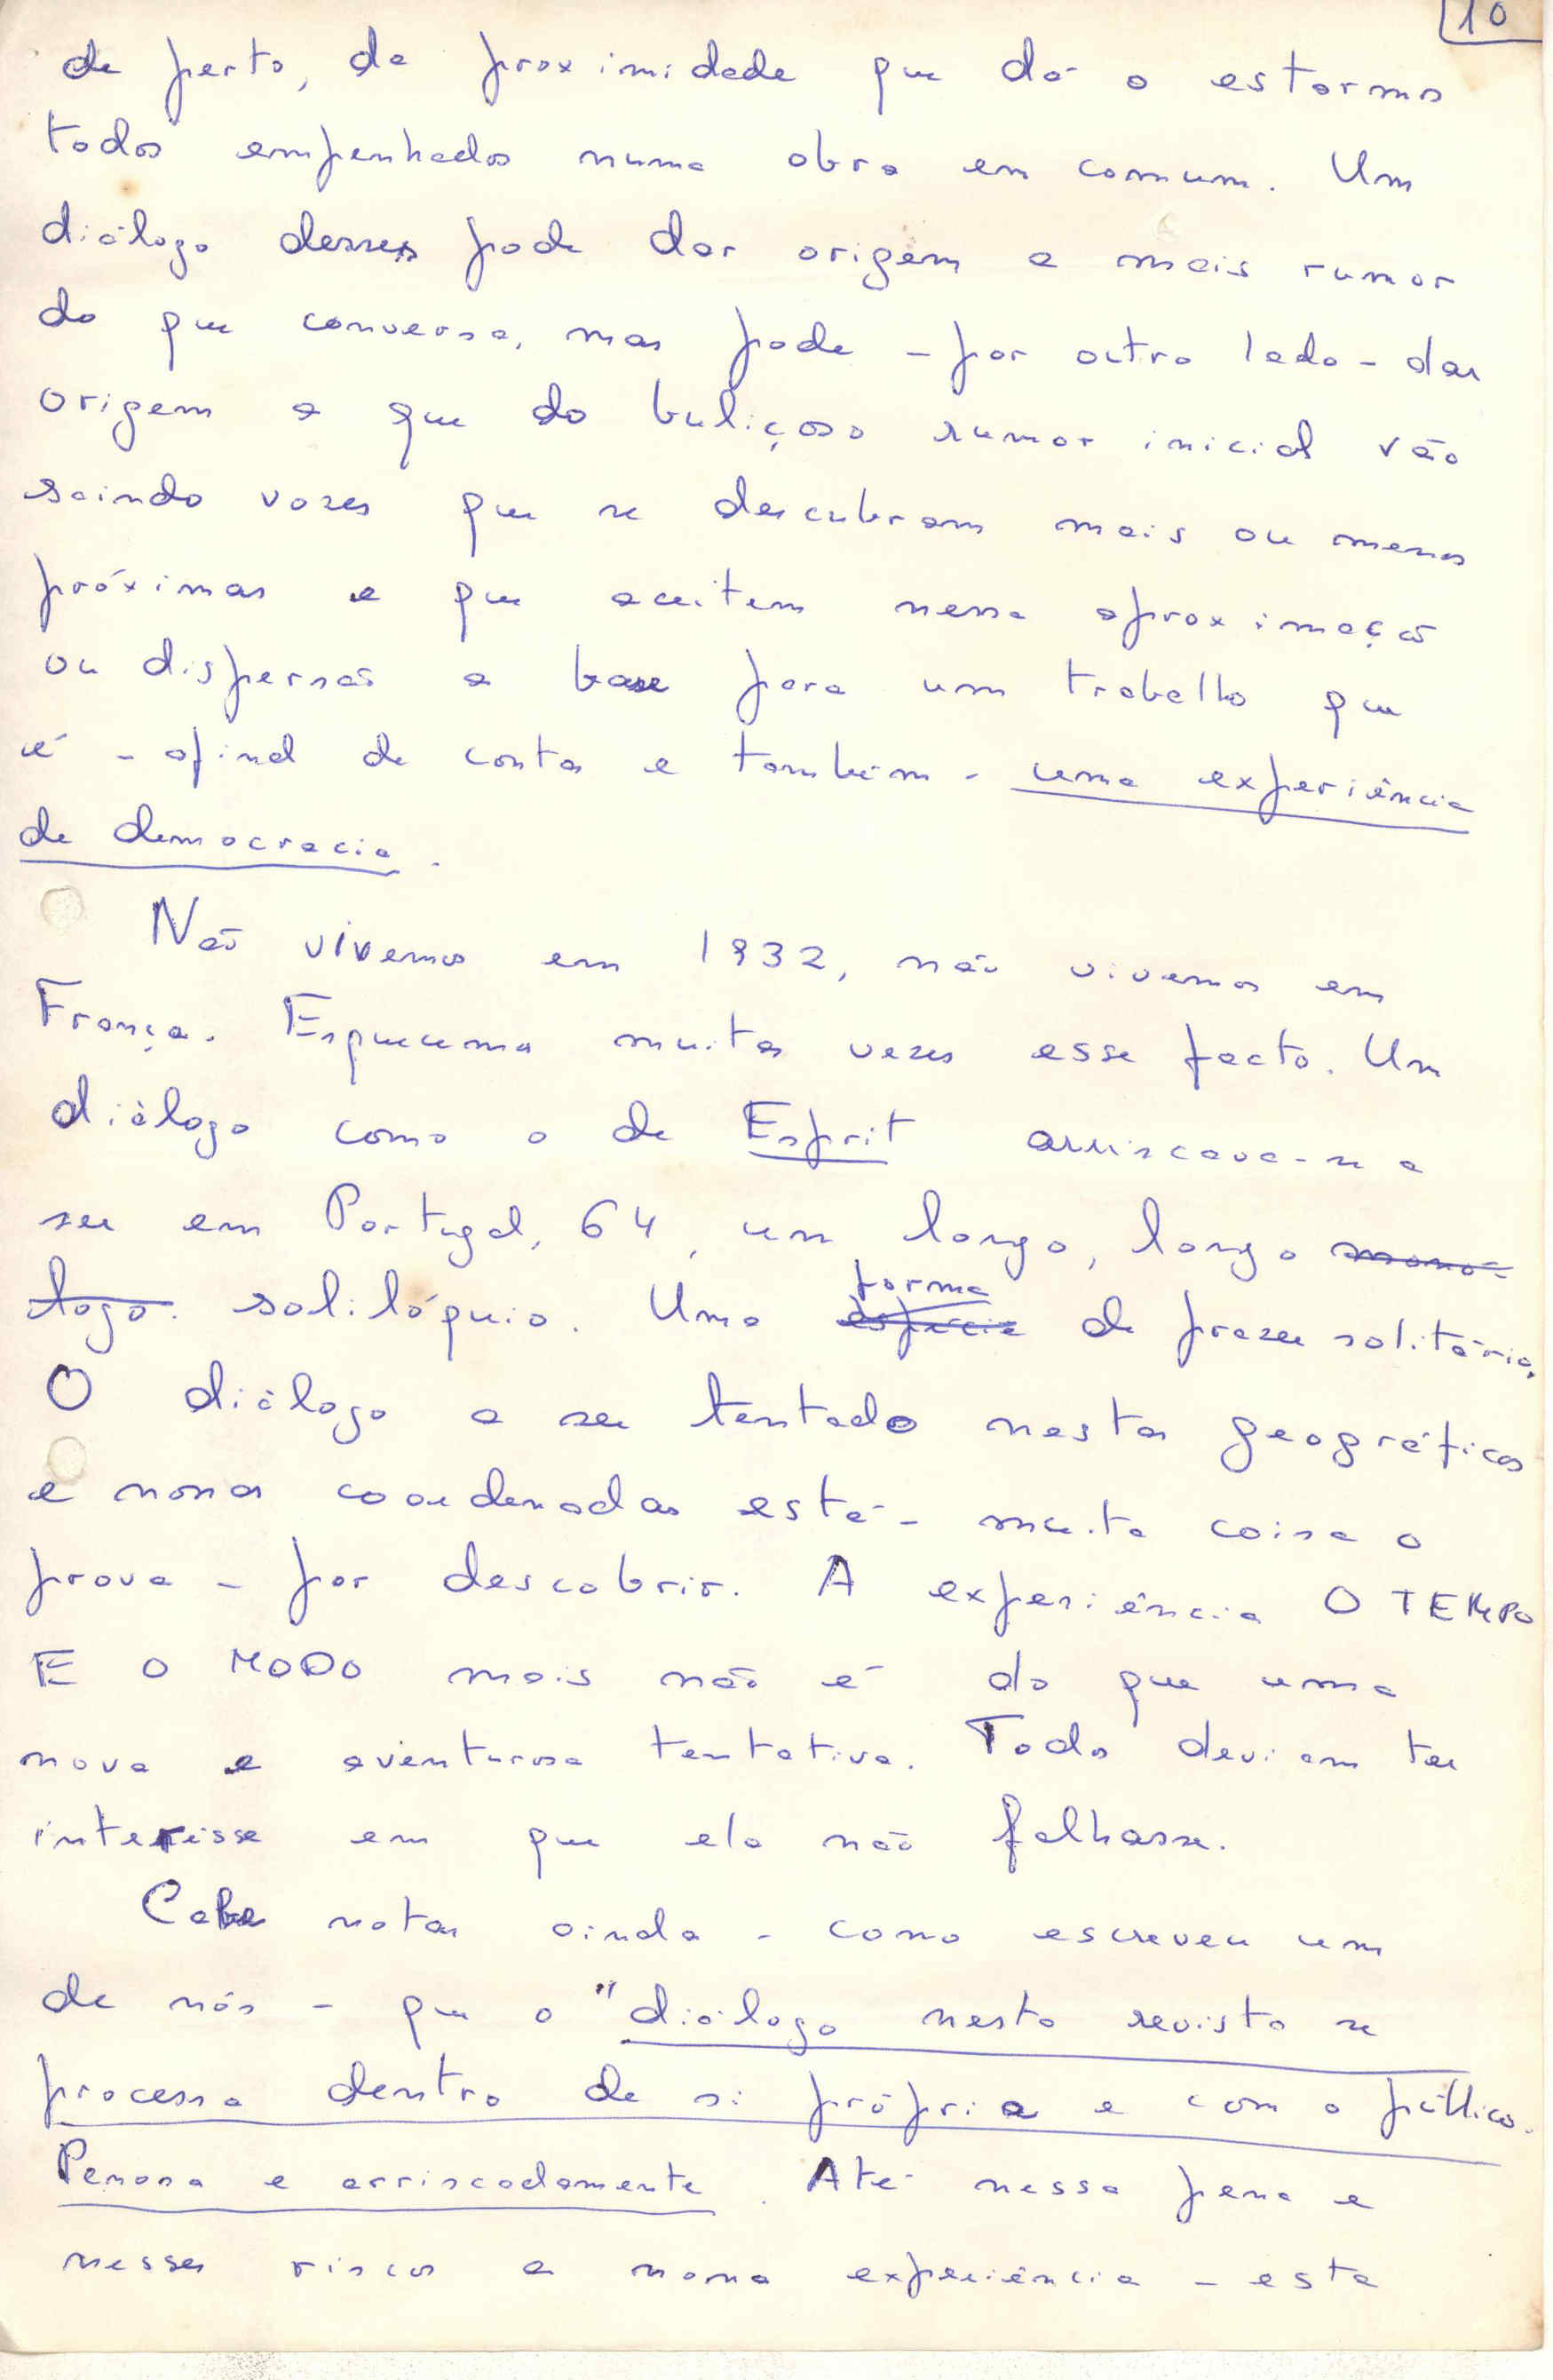 10
de perto, da proximidade que dá o estarmos
todos empenhados numa obra em comum. Um
diálogo desses pode dar origem a mais rumor
do que conversa, mas pode - por outro lado - dar
origem a que do buliçoso rumor inicial vão
saindo vozes que se descubram mais ou menos
próximas e que aceitem nessa aproximação
ou dispersão a base para um trabalho que
é - afinal de contas e também - uma experiência
de democracia.
Não vivemos em 1932, não vivemos em
França. Esquecemos muitas vezes esse facto. Um
diálogo como o de Esprit arriscava-se a
ser em Portugal, 64, um longo, longo monó-
logo. solilóquio. Uma espécie forma de prazer solitário.
O diálogo a ser tentado nestas geográficas
e nossas coordenadas está - muita coisa o
prova - por descobrir. A experiência O TEMPO
E O MODO mais não é do que uma
nova e aventurosa tentativa. Todos deviam ter
interesse em que ela não falhasse.
Cabe notar ainda - como escreveu um
de nós - que o "diálogo nesta revista se
processa dentro de si própria e com o público.
Penosa e arriscadamente. Até nessa pena e
nesses riscos a nossa experiência - esta